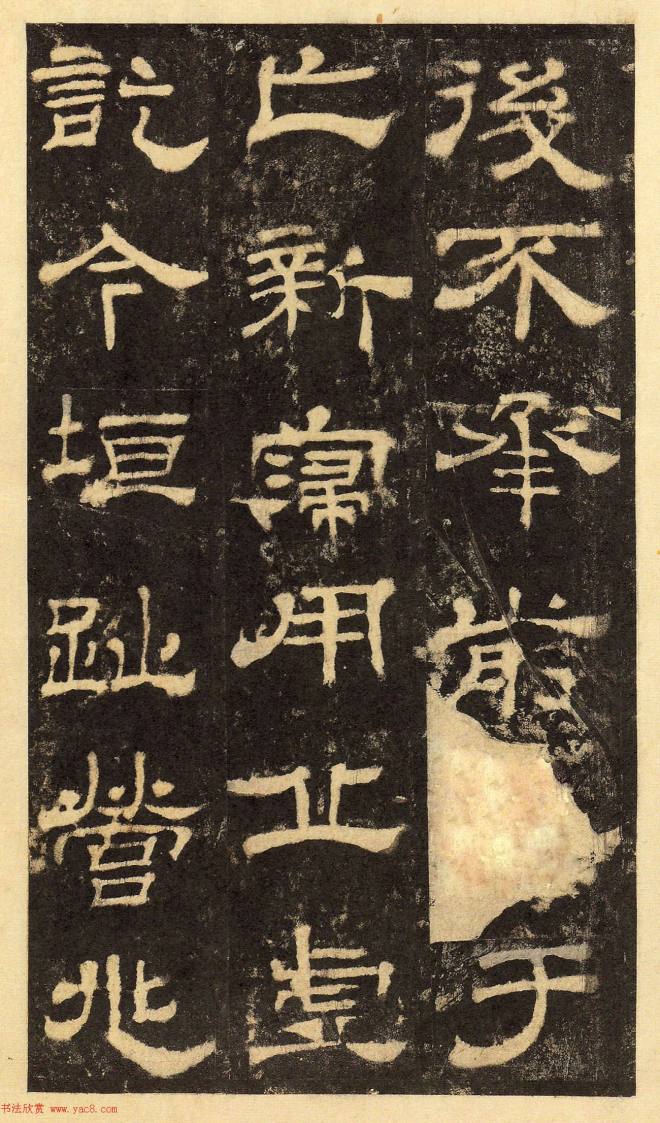 後不承前于
亡新寖用丘虛
訖今垣趾營兆
书法欣赏 www.yac8.com